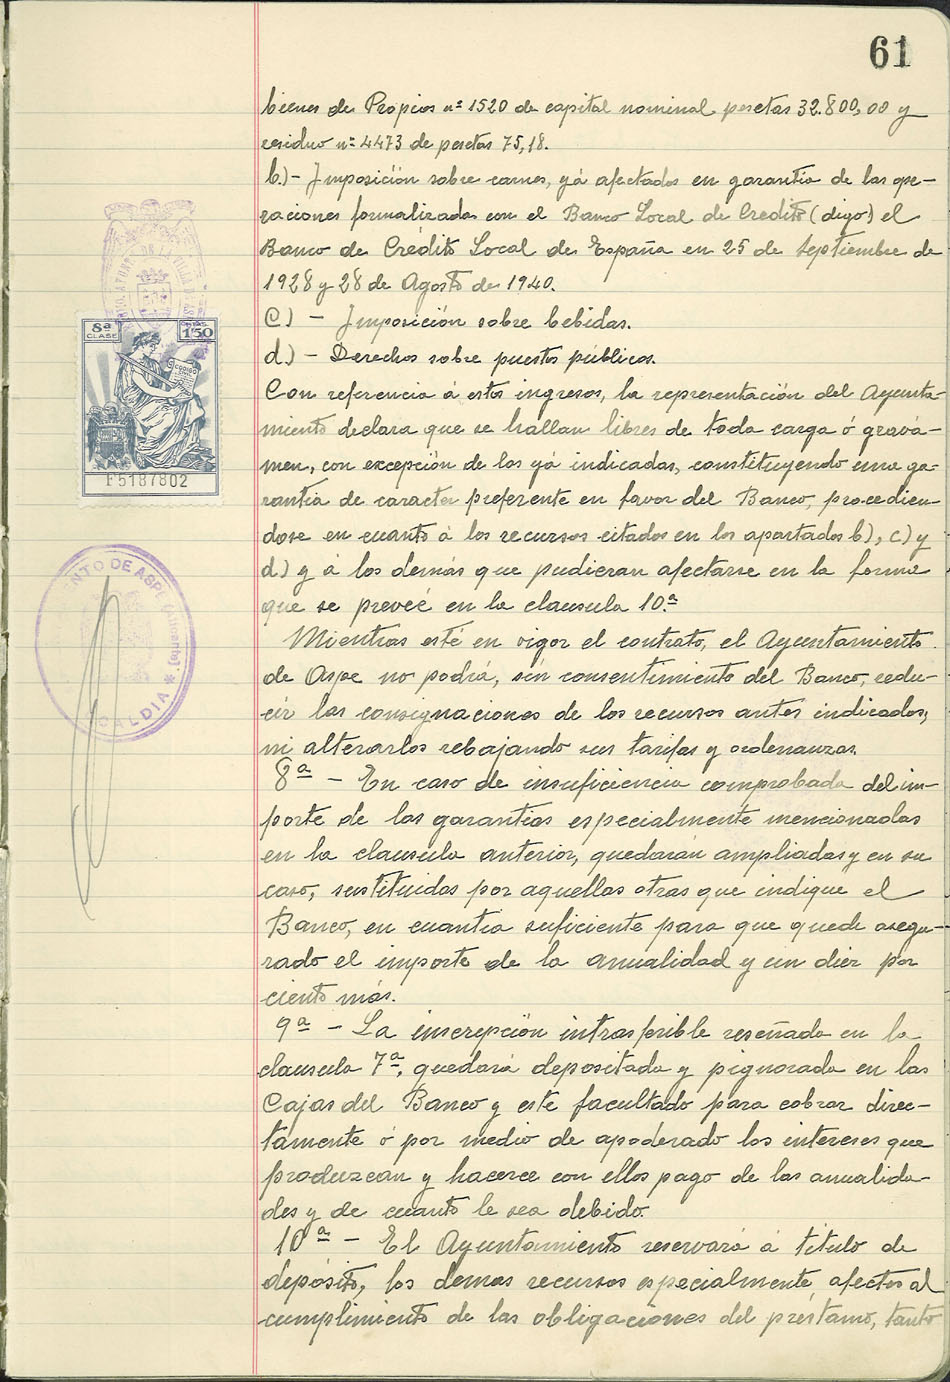 61
bienes de Propios nº 1520 de capital nominal pesetas 32.800,00 y
residuo nº 4473 de pesetas 75,18.
b) - Imposición sobre carnes, yá afectados en garantía de las ope-
raciones formalizadas con el Banco Local de Crédito (digo) el
Banco de Crédito Local de España en 25 de Septiembre de
1928 y 28 de Agosto de 1940.
C) - Imposición sobre bebidas.
d) - Derechos sobre puestos públicos.
Con referencia á estos ingresos, la representación del Ayunta-
miento declara que se hallan libres de toda carga ó gravá-
men, con excepción de los yá indicados, constituyendo una ga-
rantía de caracter preferente en favor del Banco, procedien-
dose en cuanto á los recursos citados en los apartados b), c) y
d) y á los demás que pudieran afectarse en la forma
que se preveé en la clausula 10.ª
Mientras esté en vigor el contrato, el Ayuntamiento
de Aspe no podrá, sin consentimiento del Banco, redu-
cir las consignaciones de los recursos antes indicados,
ni alterarlos rebajando sus tarifas y ordenanzas.
8ª - En caso de insuficiencia comprobada del im-
porte de las garantías especialmente mencionadas
en la clausula anterior, quedarán ampliadas y en su
caso, sustituidas por aquellas otras que indique el
Banco, en cuantía suficiente para que quede asegu-
rado el importe de la anualidad y un diez por
ciento más.
9ª - La inscrepción intrasferible reseñada en la
clausula 7ª, quedará depositada y pignorada en las
Cajas del Banco y este facultado para cobrar direc-
tamente ó por medio de apoderado los intereses que
produzcan y hacerce con ellos pago de las anualida-
des y de cuanto le sea debido.
10ª - El Ayuntamiento reservará á título de
depósito, los demas recursos especialmente afectos al
cumplimiento de las obligaciones del préstamo, tanto
8ª CLASE
1'50
F5187802
NTO DE ASPE (Alicante)
ALCALDIA